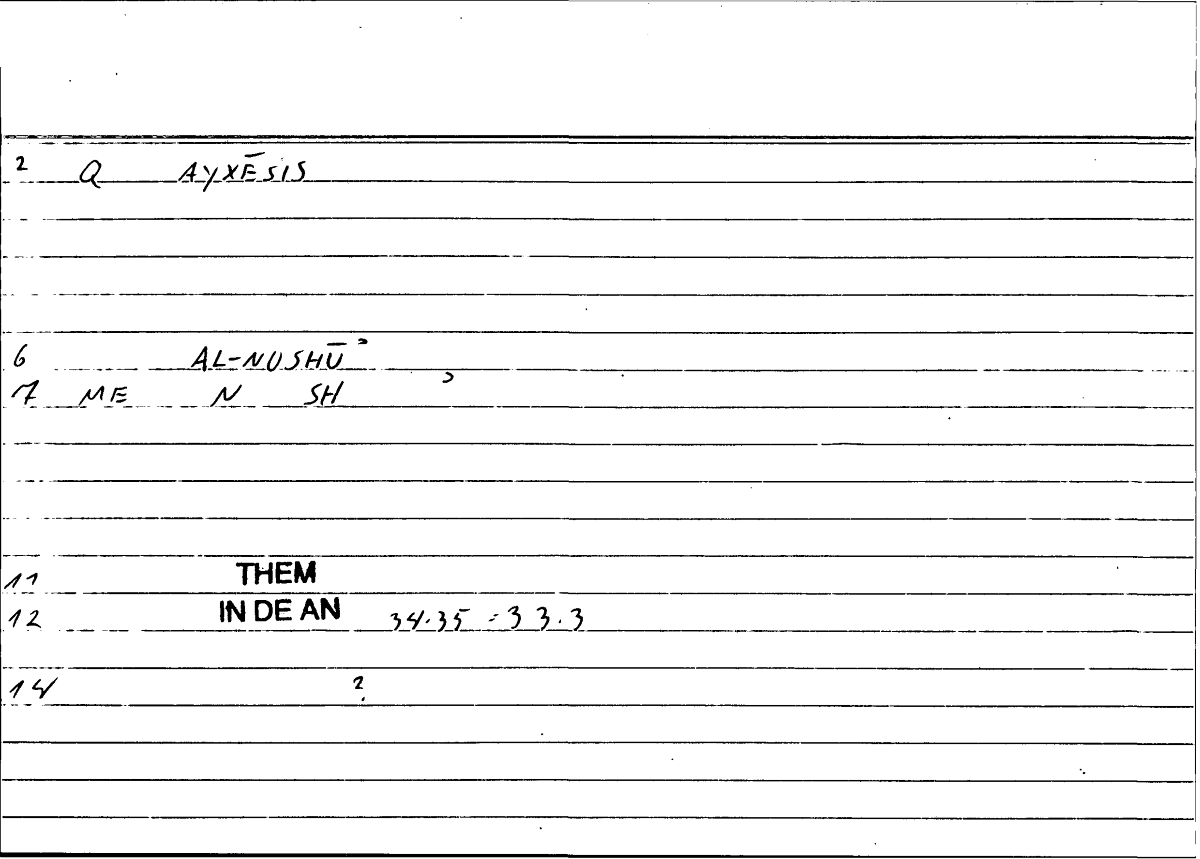 2 Q AYXĒSIS
6 AL-NUSHŪʾ
7 ME N SH ʾ
11 THEM
12 IN DE AN 34.35 - 33.3
14 ?